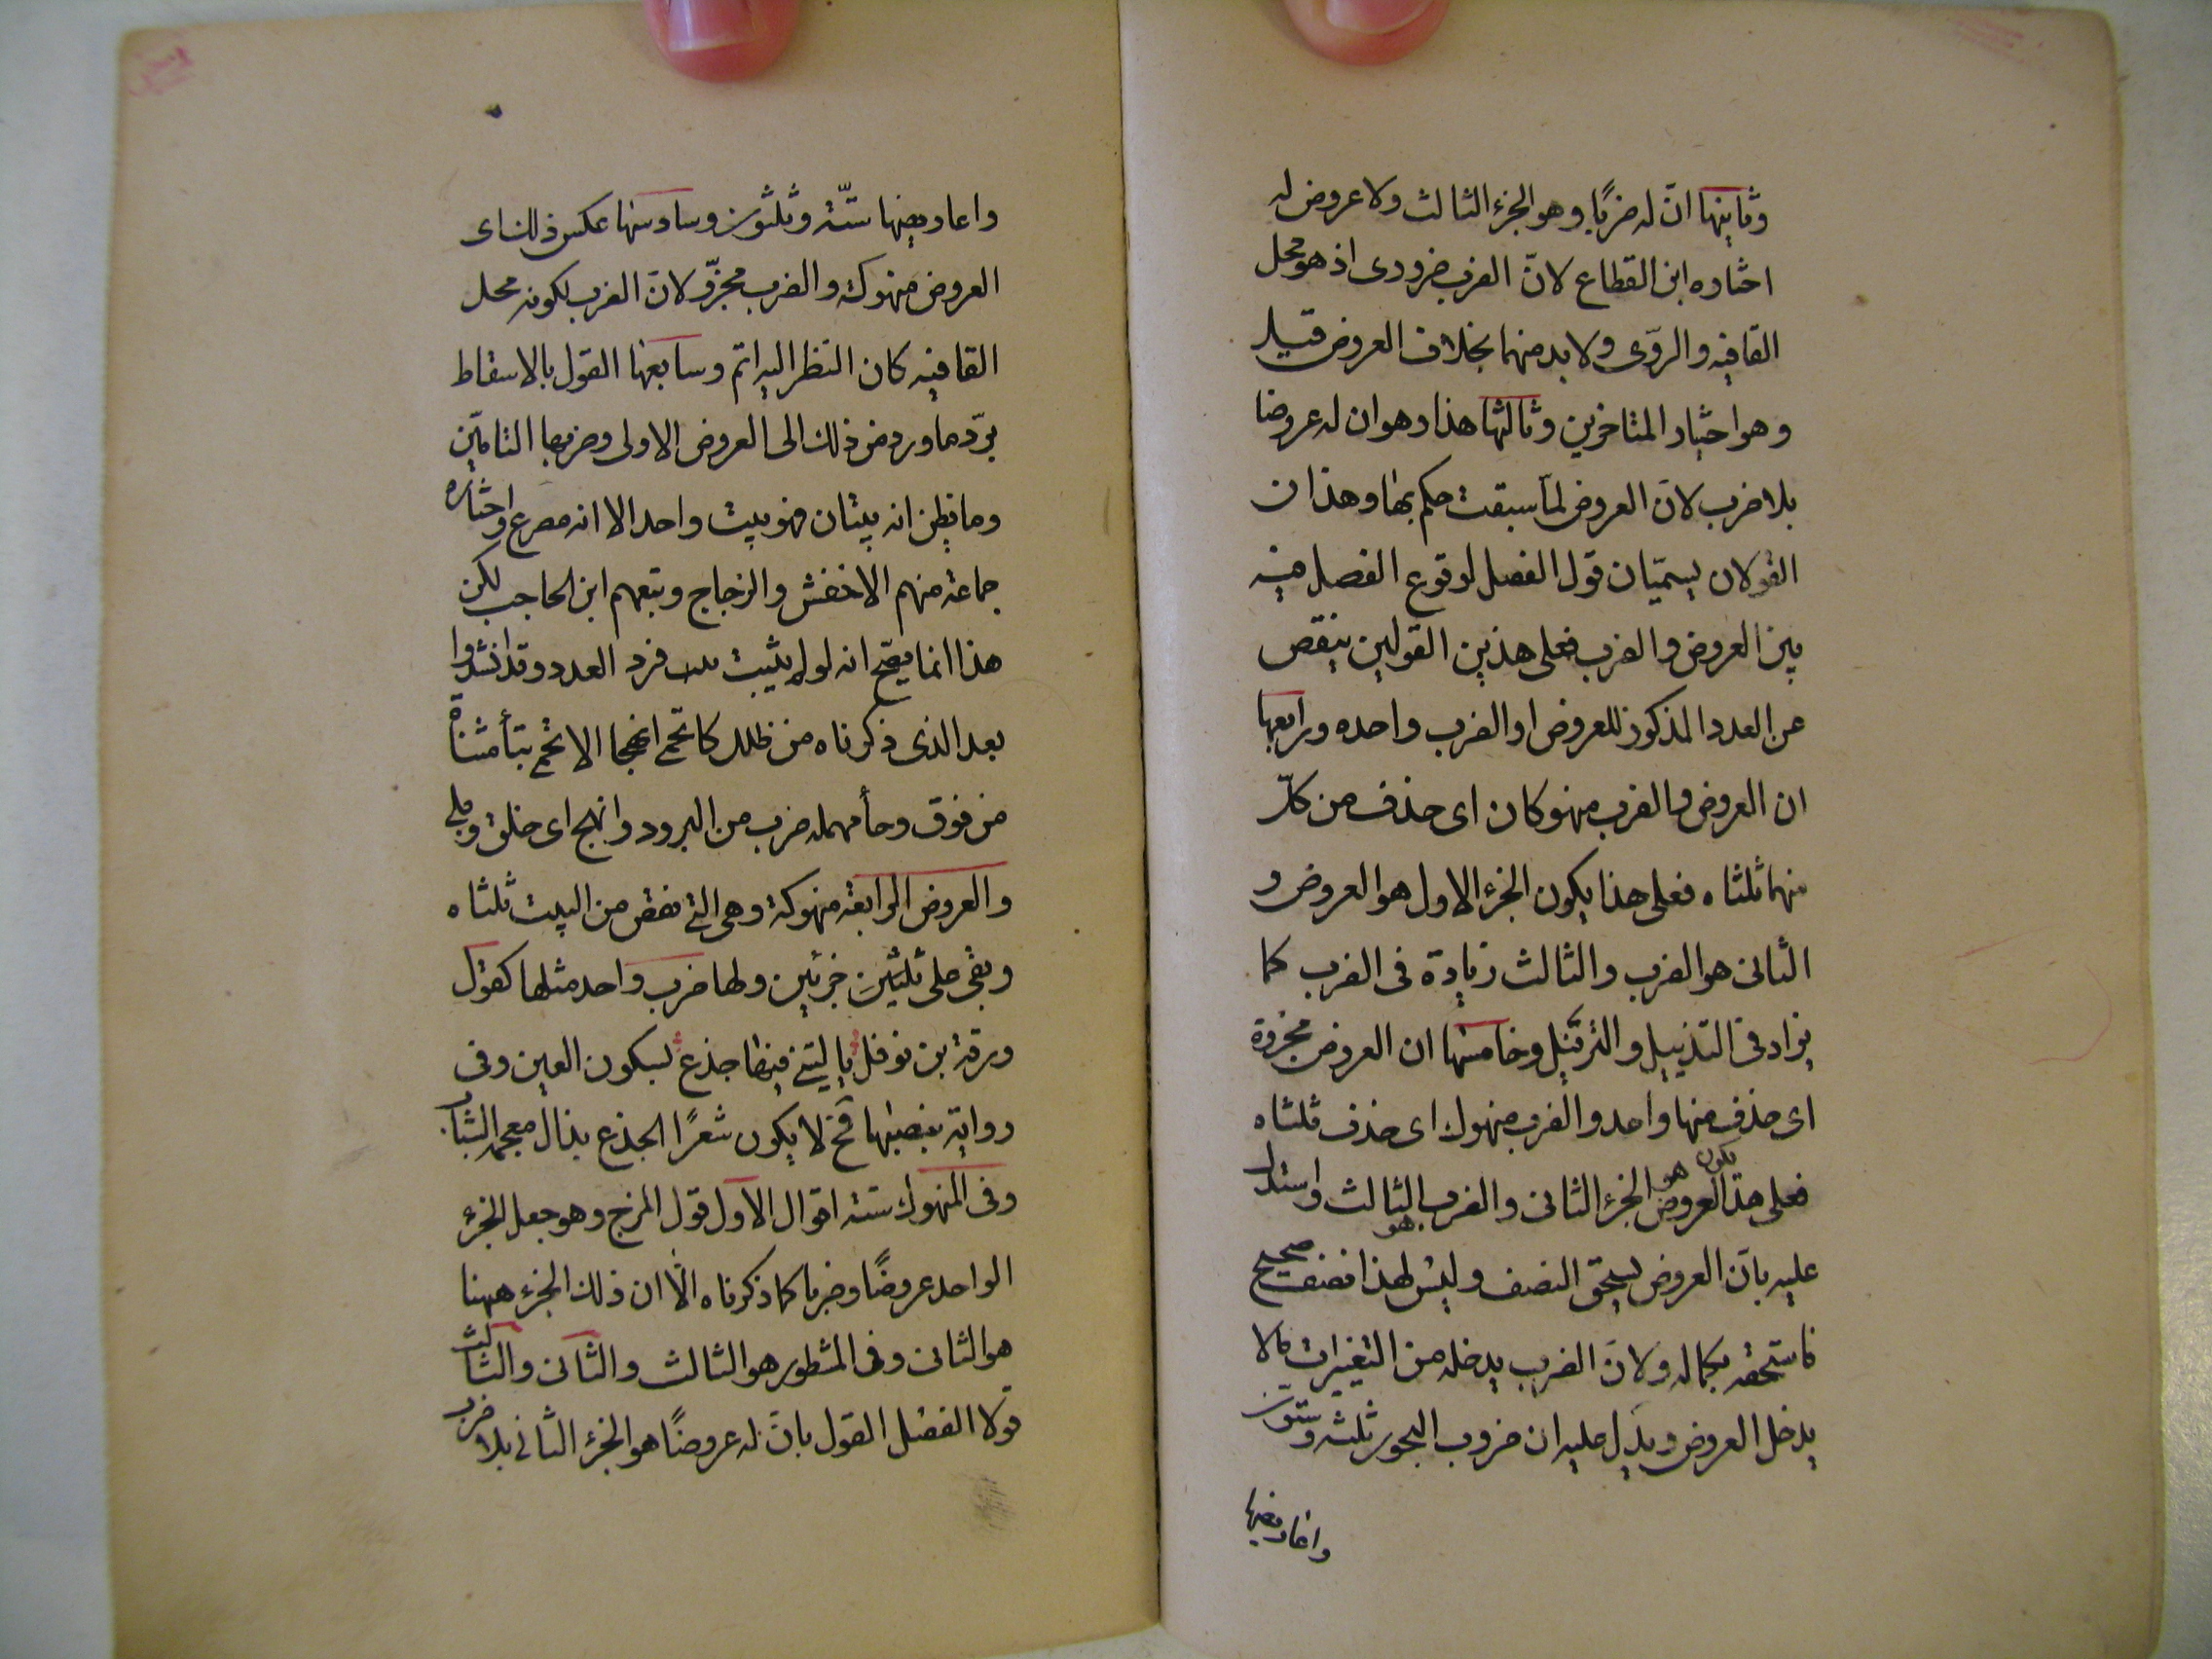 وثانيها انّ له ضربًا وهو الجزء الثالث ولا عروض له
اختاره ابن القطاع لانّ الضرب ضرورى اذ هو محل
القافيه والروّى ولا بد منهما بخلاف العروض قيل
وهو اختيار المتاخرين وثالثها هذا وهو ان له عروضا
بلا ضرب لانّ العروض لمّا سبقت حكم بها وهذان
القولان يسمّيان قول الفصل لوقوع الفصل فيه
بين العروض والضرب فعلى هذين القولين ينقص
عن العدد المذكور للعروض او الضرب واحده ورابعها
ان العروض والضرب منهوكان اى حذف من كلّ
منهما ثلثاه فعلى هذا يكون الجزء الاول هو العروض و
الثانى هو الضرب والثالث زيادة فى الضرب كما
يزاد فى التذييل والترفيل وخامسها ان العروض مجزوة
اى حذف منها واحد والضرب منهوك اى حذف ثلثاه
فعلى هذا يكون العروض هو الجزء الثانى والضرب هو الثالث واستدل
عليه بانّ العروض يستحق النصف وليس لهذا نصف صحيح
فاستحقه بكماله ولانّ الضرب يدخله من التغييرات مالا
يدخل العروض ويدل عليه ان ضروب البحور ثلثه وستون
واعاريضها
واعاريضها ستّة وثلثون وسادسها عكس ذلك اى
العروض منهوكة والضرب مجزوّ لانّ الضرب لكونه محل
القافيه كان النظر اليه اتم وسابعها القول بالاسقاط
بردّ ما ورد من ذلك الى العروض الاولى وضربها التامين
وما يظن انه بيتان فهو بيت واحد الا انه مصرع واختاره
جماعة منهم الاخفش والزجاج وتبعهم ابن الحاجب لكن
هذا انما يصح انه لو لم يثبت فرد العدد وقد انشدوا
بعد الذى ذكرناه من طلل كالاتحمى انهجا الاتحمى بتأ مثناة
من فوق وحأ مهمله ضرب من البرود وانهج اى خلق وبلى
والعروض الرابعة منهوكة وهى التى نقص من البيت ثلثاه
وبقى على ثلثين جزئين ولها ضرب واحد مثلها كقول
ورقة بن نوفل يا ليتنى فيها جذع بسكون العين وفى
رواية بنصبها فح لا يكون شعرًا الجذع بذال معجمه الشاب
وفى المنهوك ستة اقوال الاول قول المزج وهو جعل الجزء
الواحد عروضًا وضربا كما ذكرناه الّا ان ذلك الجزء ههنا
هو الثانى وفى المشطور هو الثالث والثانى والثالث
قولا الفصل القول بانّ له عروضًا هو الجزء الثانى بلا ضرب